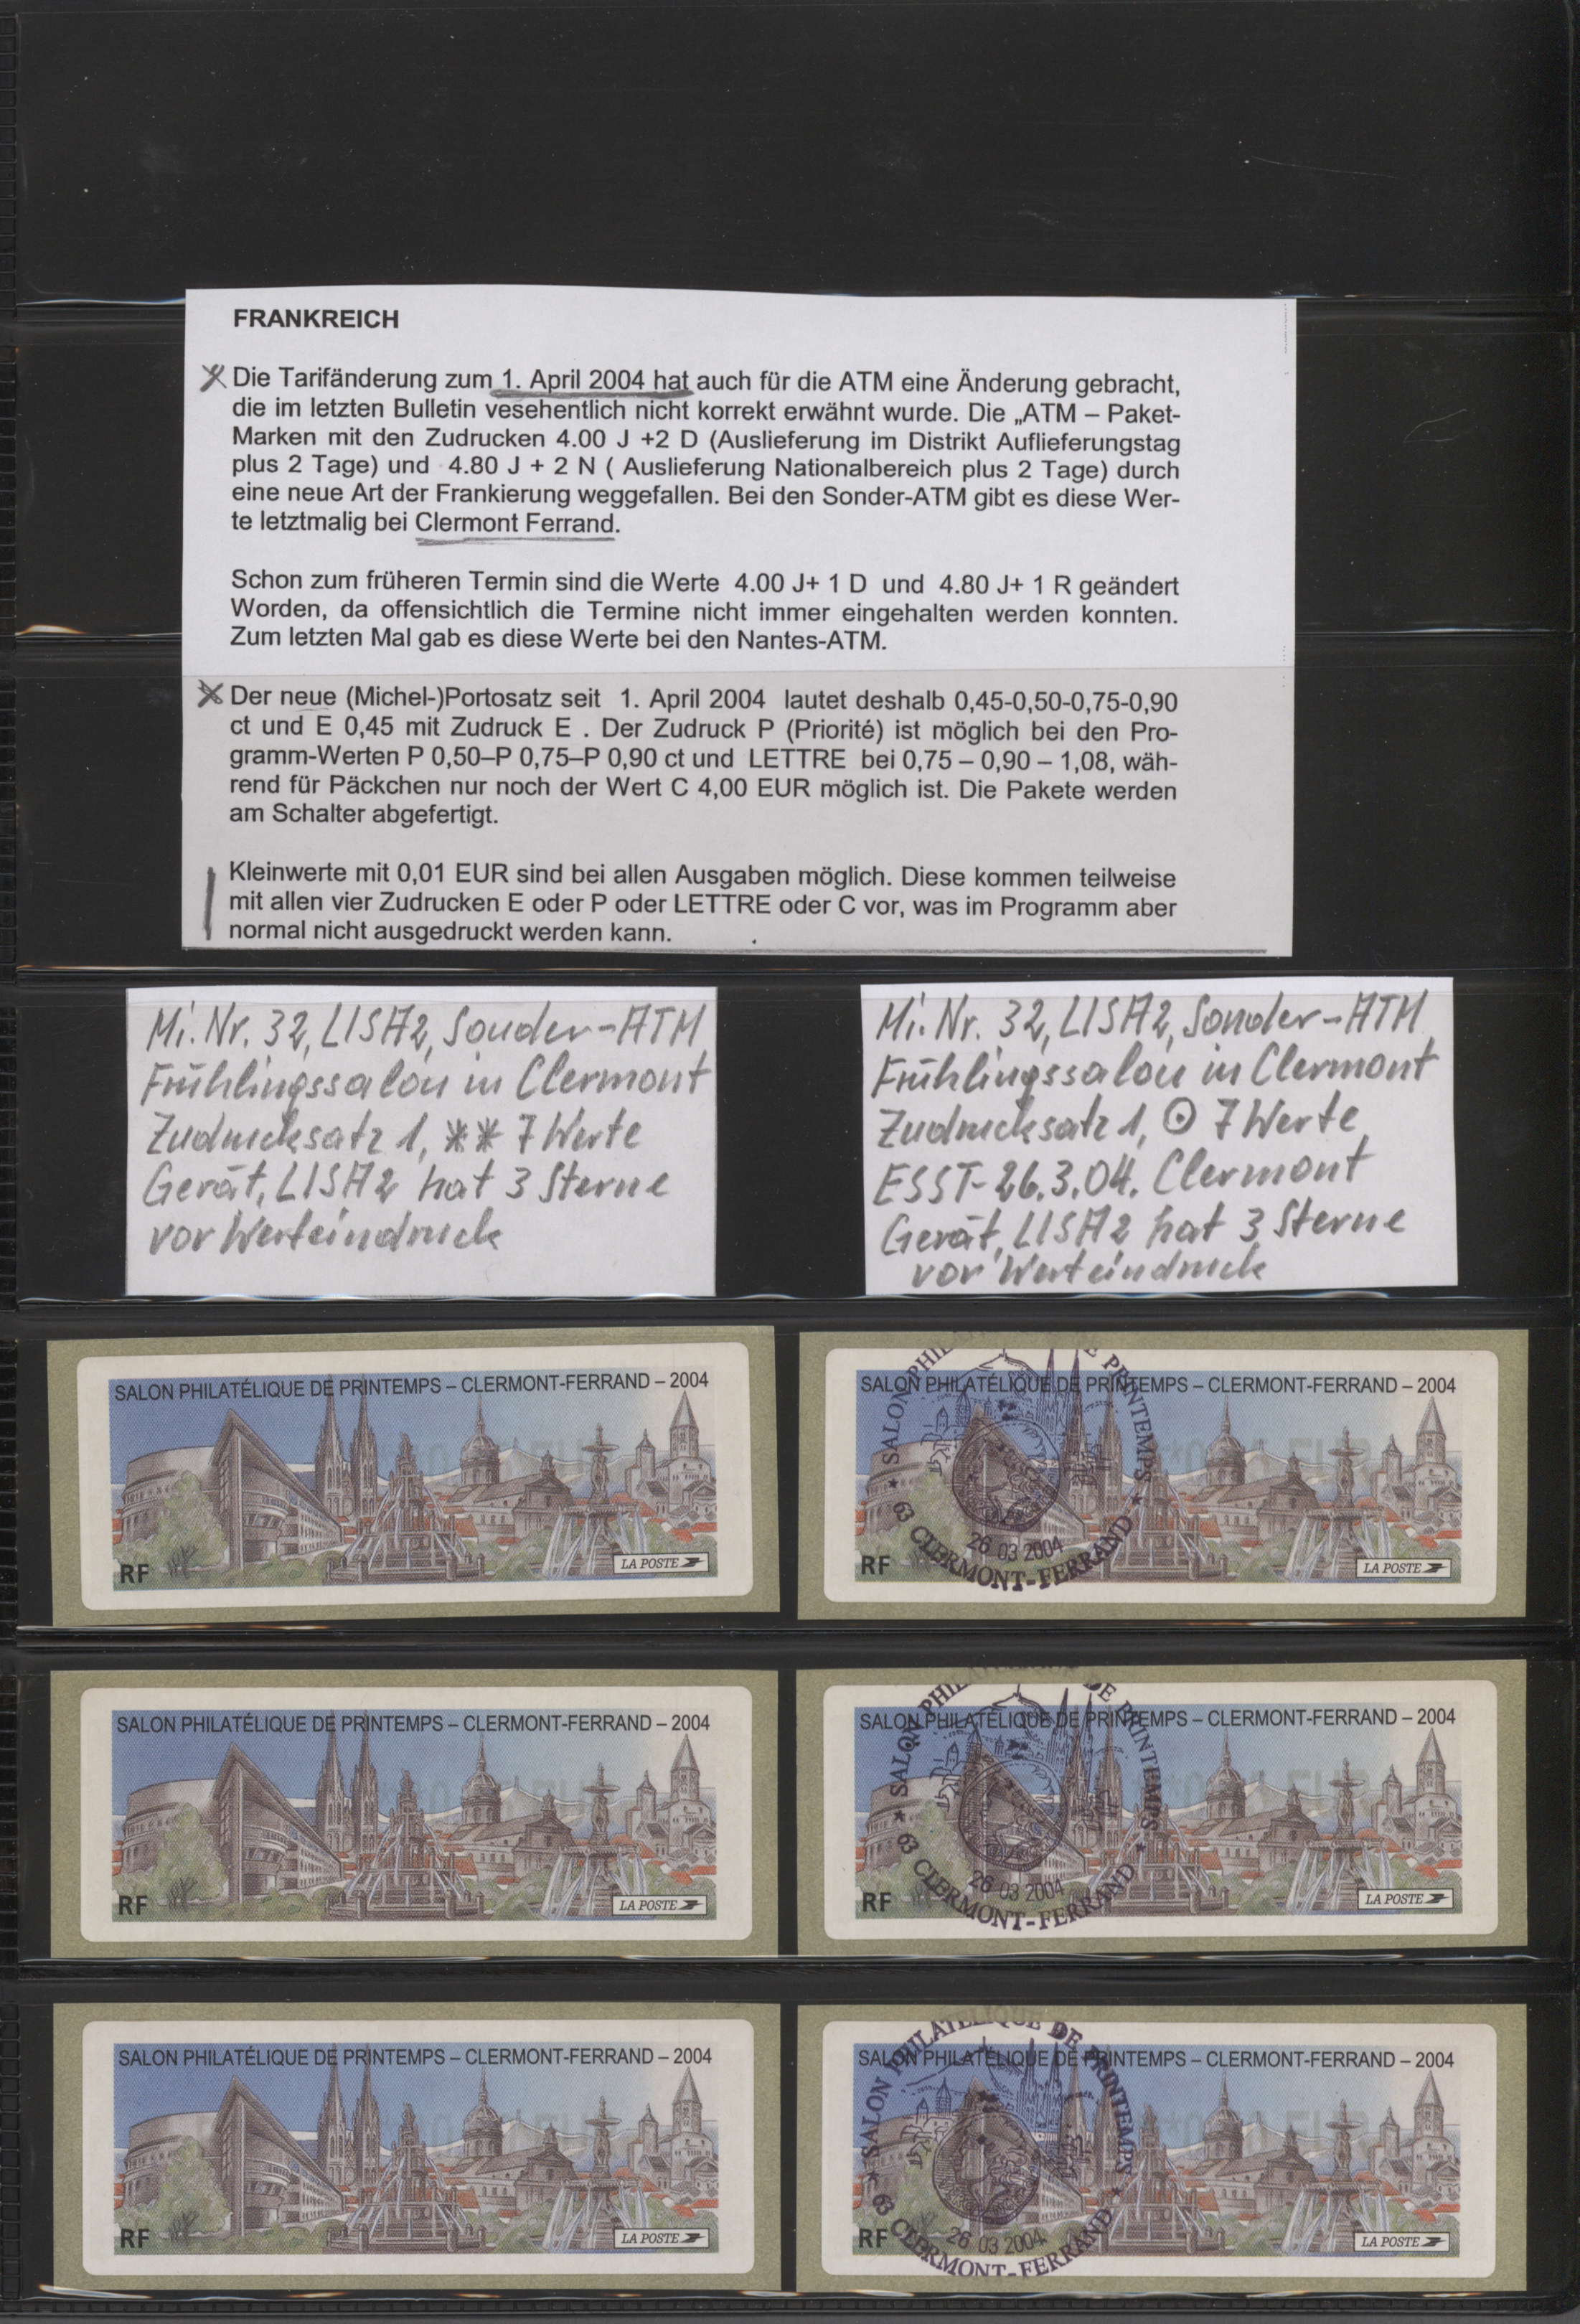 FRANKREICH
Die Tarifänderung zum 1. April 2004 hat auch für die ATM eine Änderung gebracht,
die im letzten Bulletin vesehentlich nicht korrekt erwähnt wurde. Die „ATM – Paket-
Marken mit den Zudrucken 4.00 J +2 D (Auslieferung im Distrikt Auflieferungstag
plus 2 Tage) und 4.80 J + 2 N ( Auslieferung Nationalbereich plus 2 Tage) durch
eine neue Art der Frankierung weggefallen. Bei den Sonder-ATM gibt es diese Wer-
te letztmalig bei Clermont Ferrand.
Schon zum früheren Termin sind die Werte 4.00 J+ 1 D und 4.80 J+ 1 R geändert
Worden, da offensichtlich die Termine nicht immer eingehalten werden konnten.
Zum letzten Mal gab es diese Werte bei den Nantes-ATM.
Der neue (Michel-)Portosatz seit 1. April 2004 lautet deshalb 0,45-0,50-0,75-0,90
ct und E 0,45 mit Zudruck E . Der Zudruck P (Priorité) ist möglich bei den Pro-
gramm-Werten P 0,50–P 0,75–P 0,90 ct und LETTRE bei 0,75 – 0,90 – 1,08, wäh-
rend für Päckchen nur noch der Wert C 4,00 EUR möglich ist. Die Pakete werden
am Schalter abgefertigt.
Kleinwerte mit 0,01 EUR sind bei allen Ausgaben möglich. Diese kommen teilweise
mit allen vier Zudrucken E oder P oder LETTRE oder C vor, was im Programm aber
normal nicht ausgedruckt werden kann.
Mi. Nr. 32, LISA2, Sonder-ATM
Frühlingssalon in Clermont
Zudrucksatz 1, ** 7 Werte
Gerät, LISA2 hat 3 Sterne
vor Werteindruck
Mi. Nr. 32, LISA2, Sonder-ATM
Frühlingssalon in Clermont
Zudrucksatz 1, ⊙ 7 Werte
ESST-26.3.04. Clermont
Gerät, LISA2 hat 3 Sterne
vor Werteindruck
SALON PHILATÉLIQUE DE PRINTEMPS – CLERMONT-FERRAND – 2004
RF
LA POSTE
SALON PHILATÉLIQUE DE PRINTEMPS – CLERMONT-FERRAND – 2004
SALON PHIL E PRINTEMPS
26 03 2004
63 CLERMONT-FERRAND
RF
LA POSTE
SALON PHILATÉLIQUE DE PRINTEMPS – CLERMONT-FERRAND – 2004
RF
LA POSTE
SALON PHILATÉLIQUE DE PRINTEMPS – CLERMONT-FERRAND – 2004
SALON PHILATELIQUE DE PRINTEMPS
26 03 2004
63 CLERMONT-FERRAND
RF
LA POSTE
SALON PHILATÉLIQUE DE PRINTEMPS – CLERMONT-FERRAND – 2004
RF
LA POSTE
SALON PHILATÉLIQUE DE PRINTEMPS – CLERMONT-FERRAND – 2004
SALON PHILATELIQUE DE PRINTEMPS
26 03 2004
63 CLERMONT-FERRAND
RF
LA POSTE